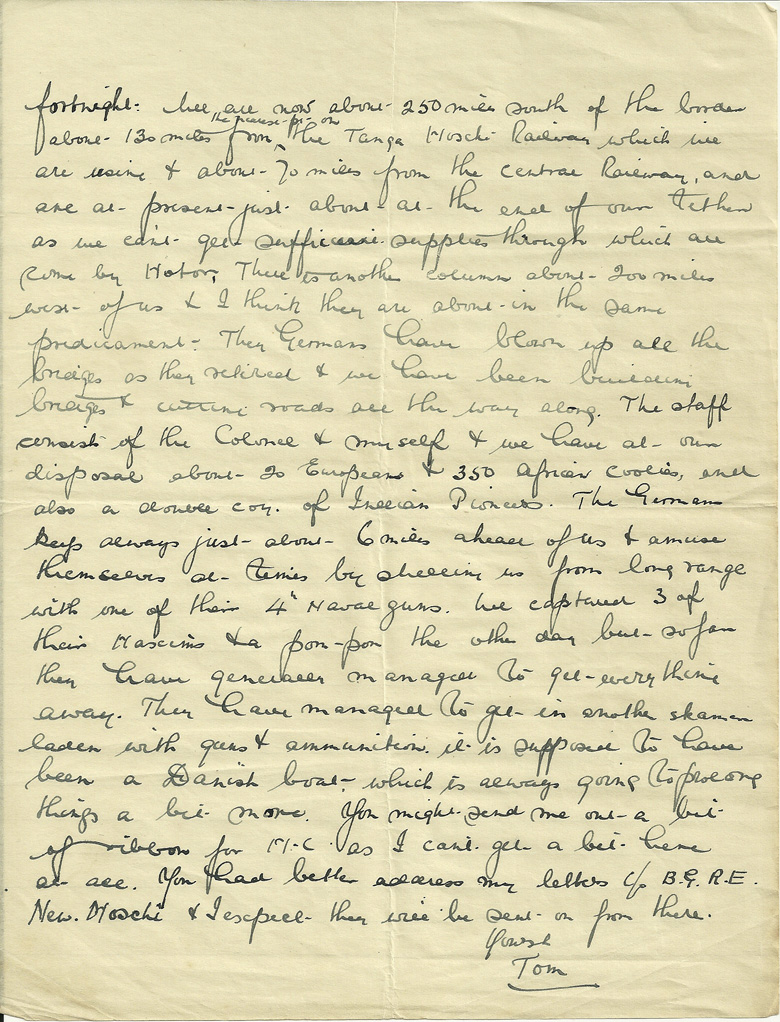 fortnight. We are now about 250 miles south of the border
the nearest pt on
about 130 miles from the Tanga Moschi Railway which we
are using & about 70 miles from the central Railway, and
are at present just about at the end of our tether
as we can't get sufficient supplies through which all
come by Motor, There is another column about 200 miles
west of us & I think they are about in the same
predicament. They Germans have blown up all the
bridges as they retired & we have been building
bridges & cutting roads all the way along. The staff
consists of the Colonel & myself & we have at our
disposal about 20 Europeans & 350 African coolies, and
also a double coy. of Indian Pioneers. The Germans
keep always just about 6 miles ahead of us & amuse
themselves at times by shelling us from long range
with one of their 4" Naval guns. We captured 3 of
their Maxims & a pom-pom the other day but so far
they have generally managed to get everything
away. They have managed to get in another steamer
laden with guns & ammunition. it is supposed to have
been a Danish boat, which is always going to prolong
things a bit more. You might send me out a bit
of ribbon for M.C. as I can't get a bit here
at all. You had better address my letters c/o B.G. R.E.
New. Moschi & I expect they will be sent on from there.
Tom